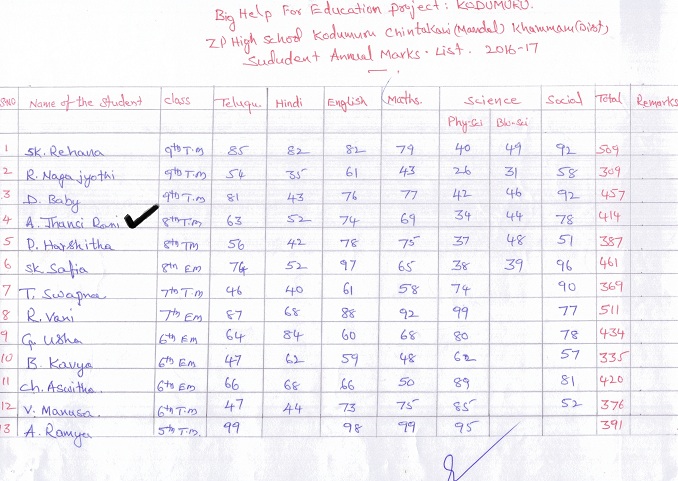 Big Help For Education project: KODUMURU.
ZP High School Kodumuru Chintakani (Mandal) Khammam (Dist)
Sududent Annual Marks. List. 2016-17
S.NO Name of the Student class Telugu. Hindi English Maths. Science Social Total Remarks
Phy-Sci Bio-Sci
1 SK. Rehana 9th T.M 85 82 82 79 40 49 92 509
2 R. Naga jyothi 9th T.M 54 35 61 43 26 31 58 309
3 D. Baby 9th T.M 81 43 76 77 42 46 92 457
4 A. Jhanci Rani 8th T.M 63 52 74 69 34 44 78 414
5 D. Harshitha 8th TM 56 42 78 75 37 48 51 387
6 SK Safia 8th EM 74 52 97 65 38 39 96 461
7 T. Swapna 7th T.M 46 40 61 58 74 90 369
8 R. Vani 7th EM 87 68 88 92 99 77 511
9 G. Usha 6th EM 64 84 60 68 80 78 434
10 B. Kavya 6th EM 47 62 59 48 62 57 335
11 Ch. Aswitha. 6th EM 66 68 66 50 89 81 420
12 V. Manusa. 6th T.M 47 44 73 75 85 52 376
13 A. Ramya 5th T.M. 99 98 99 95 391